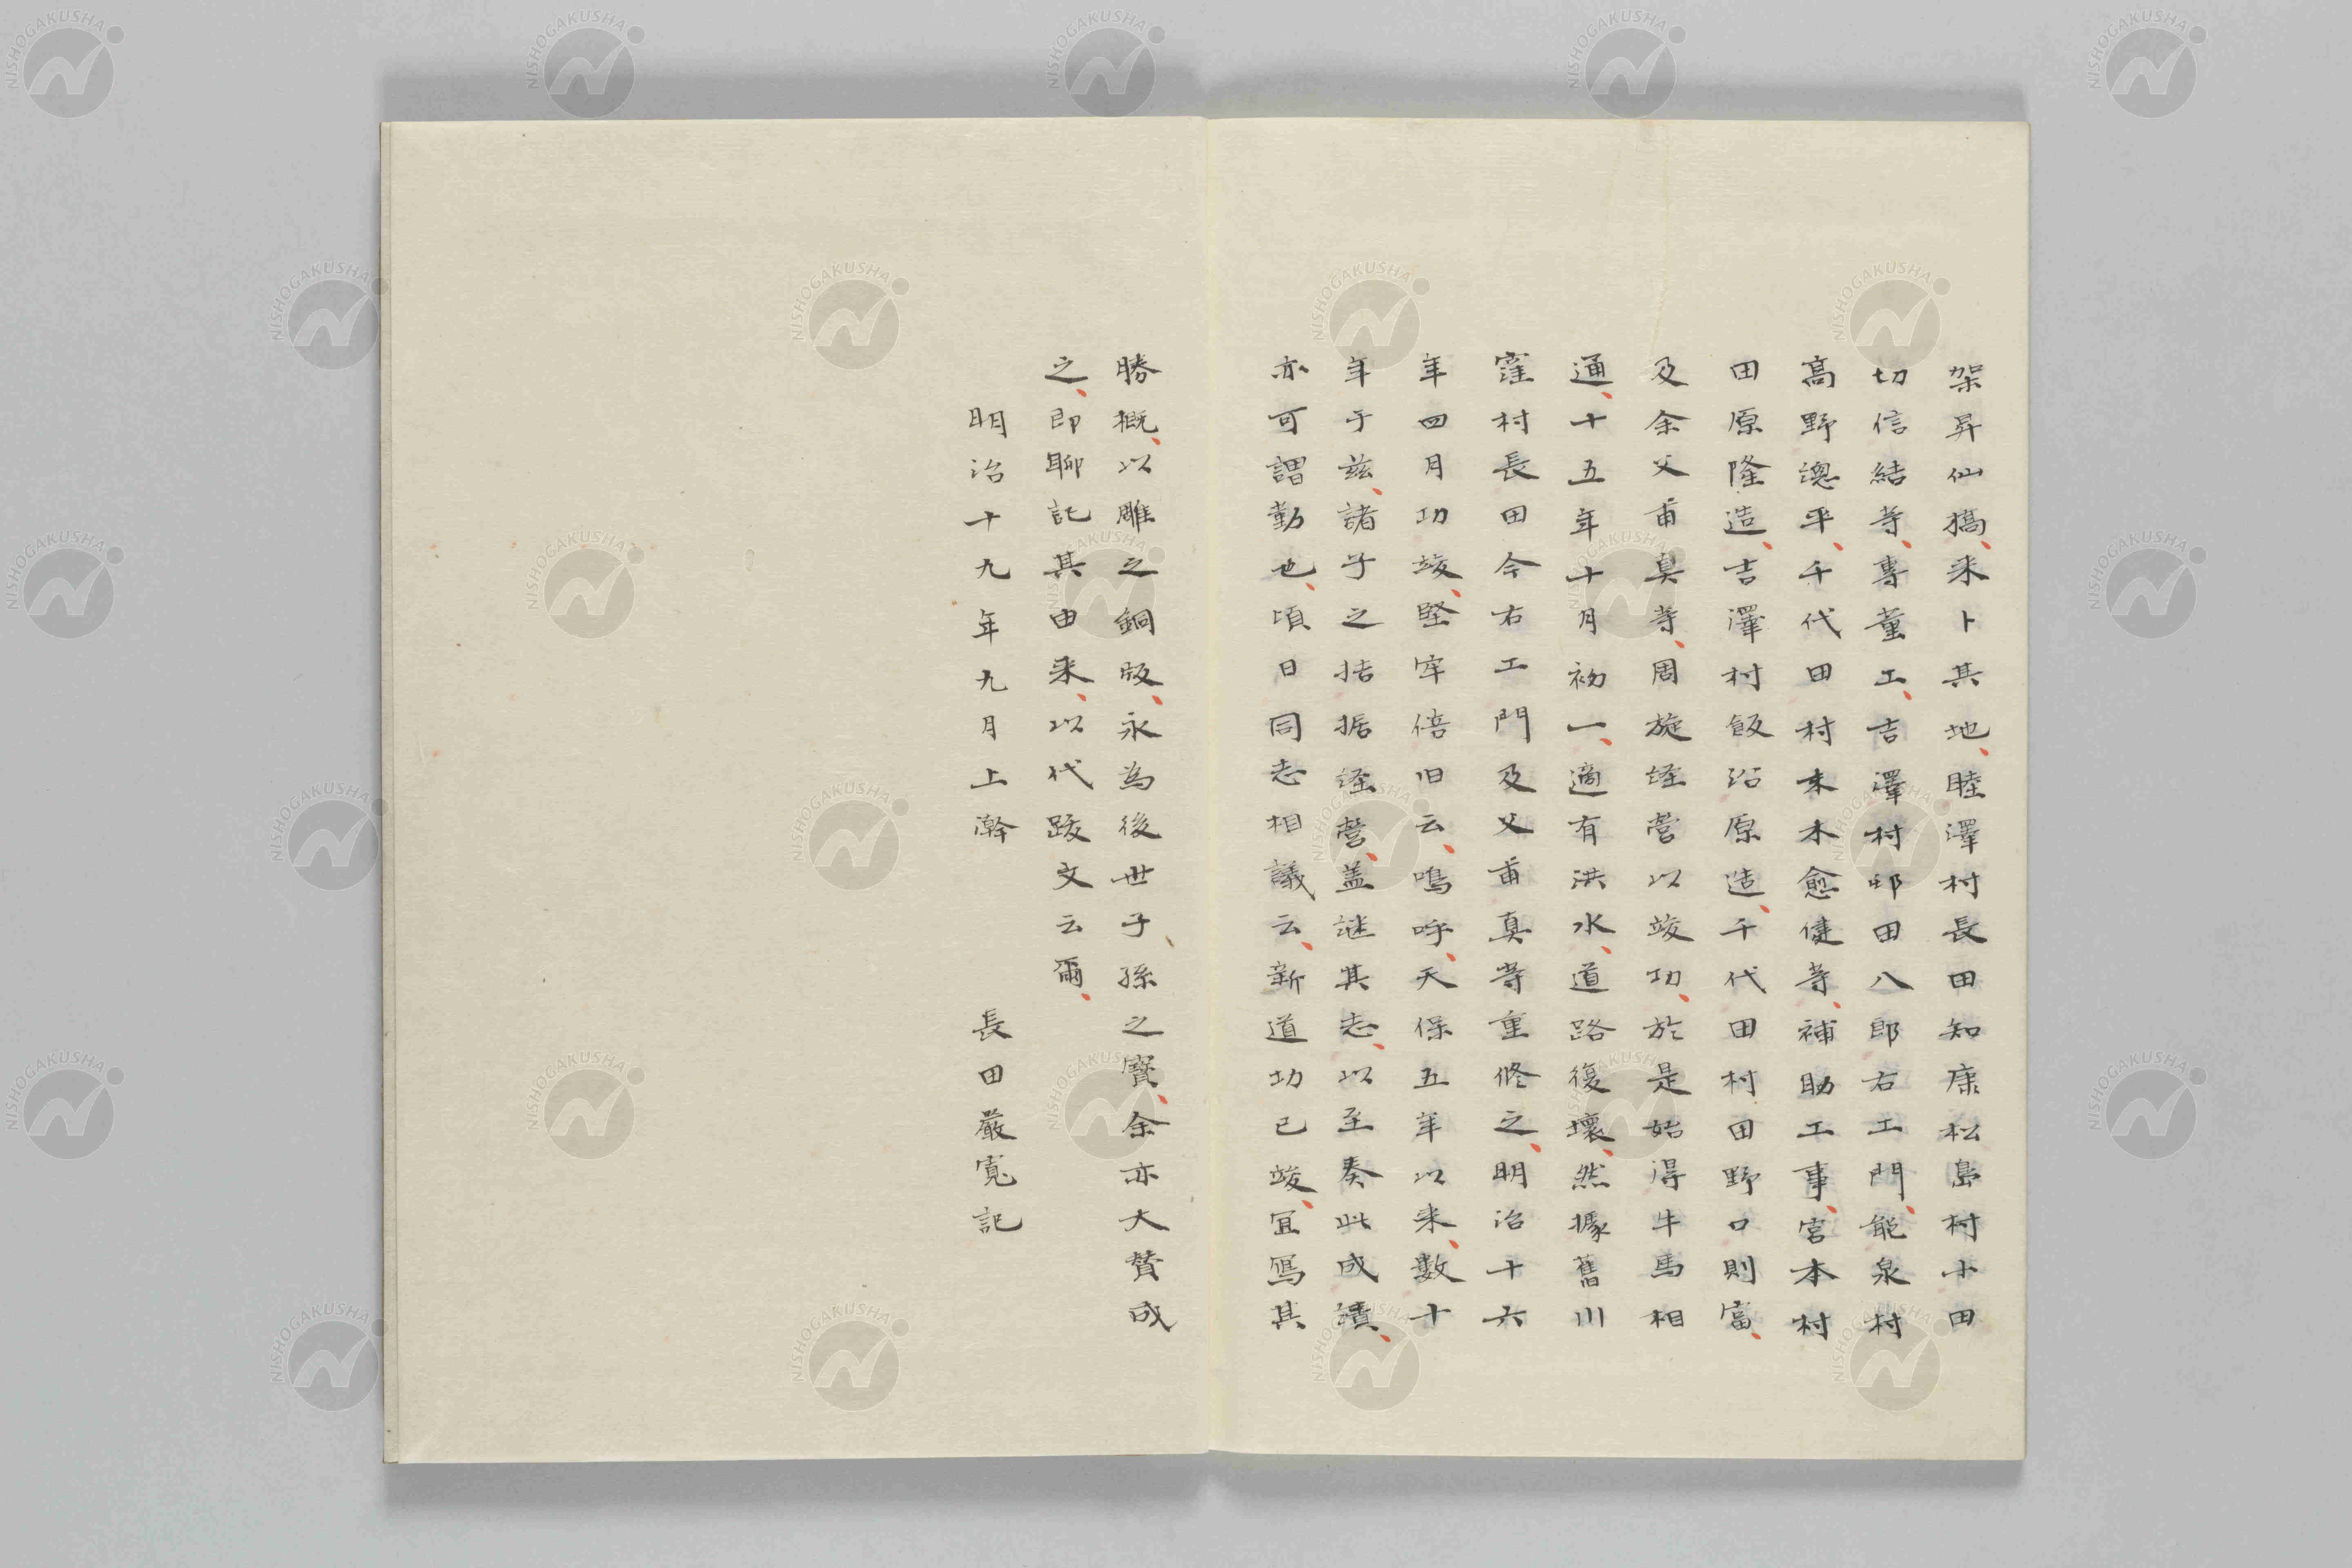 架昇仙橋、来卜其地、睦澤村長田知康松島村小田
切信結等、專董工、吉澤村邨田八郎右工門、能泉村
高野總平、千代田村末木愈健等、補助工事、宮本村
田原隆造、吉澤村飯沼原造、千代田村田野口則富、
及余父甫真等、周旋経営以竣功、於是始得牛馬相
通、十五年十月初一、適有洪水、道路復壊、然據舊川
窪村長田今右工門及父甫真等重修之、明治十六
年四月功竣、堅牢倍旧云、鳴呼、天保五年以来、數十
年于茲、諸子之拮据経営、盖謎其志、以至奏此成績、
亦可謂勤也、頃日同志相議云、新道功已竣、宜寫其
勝概、以雕之銅版、永為後世子孫之寳、余亦大賛成
之、即聊記其由来、以代跋文云爾、
明治十九年九月上澣 長田巌寛記
NISHOGAKUSHA